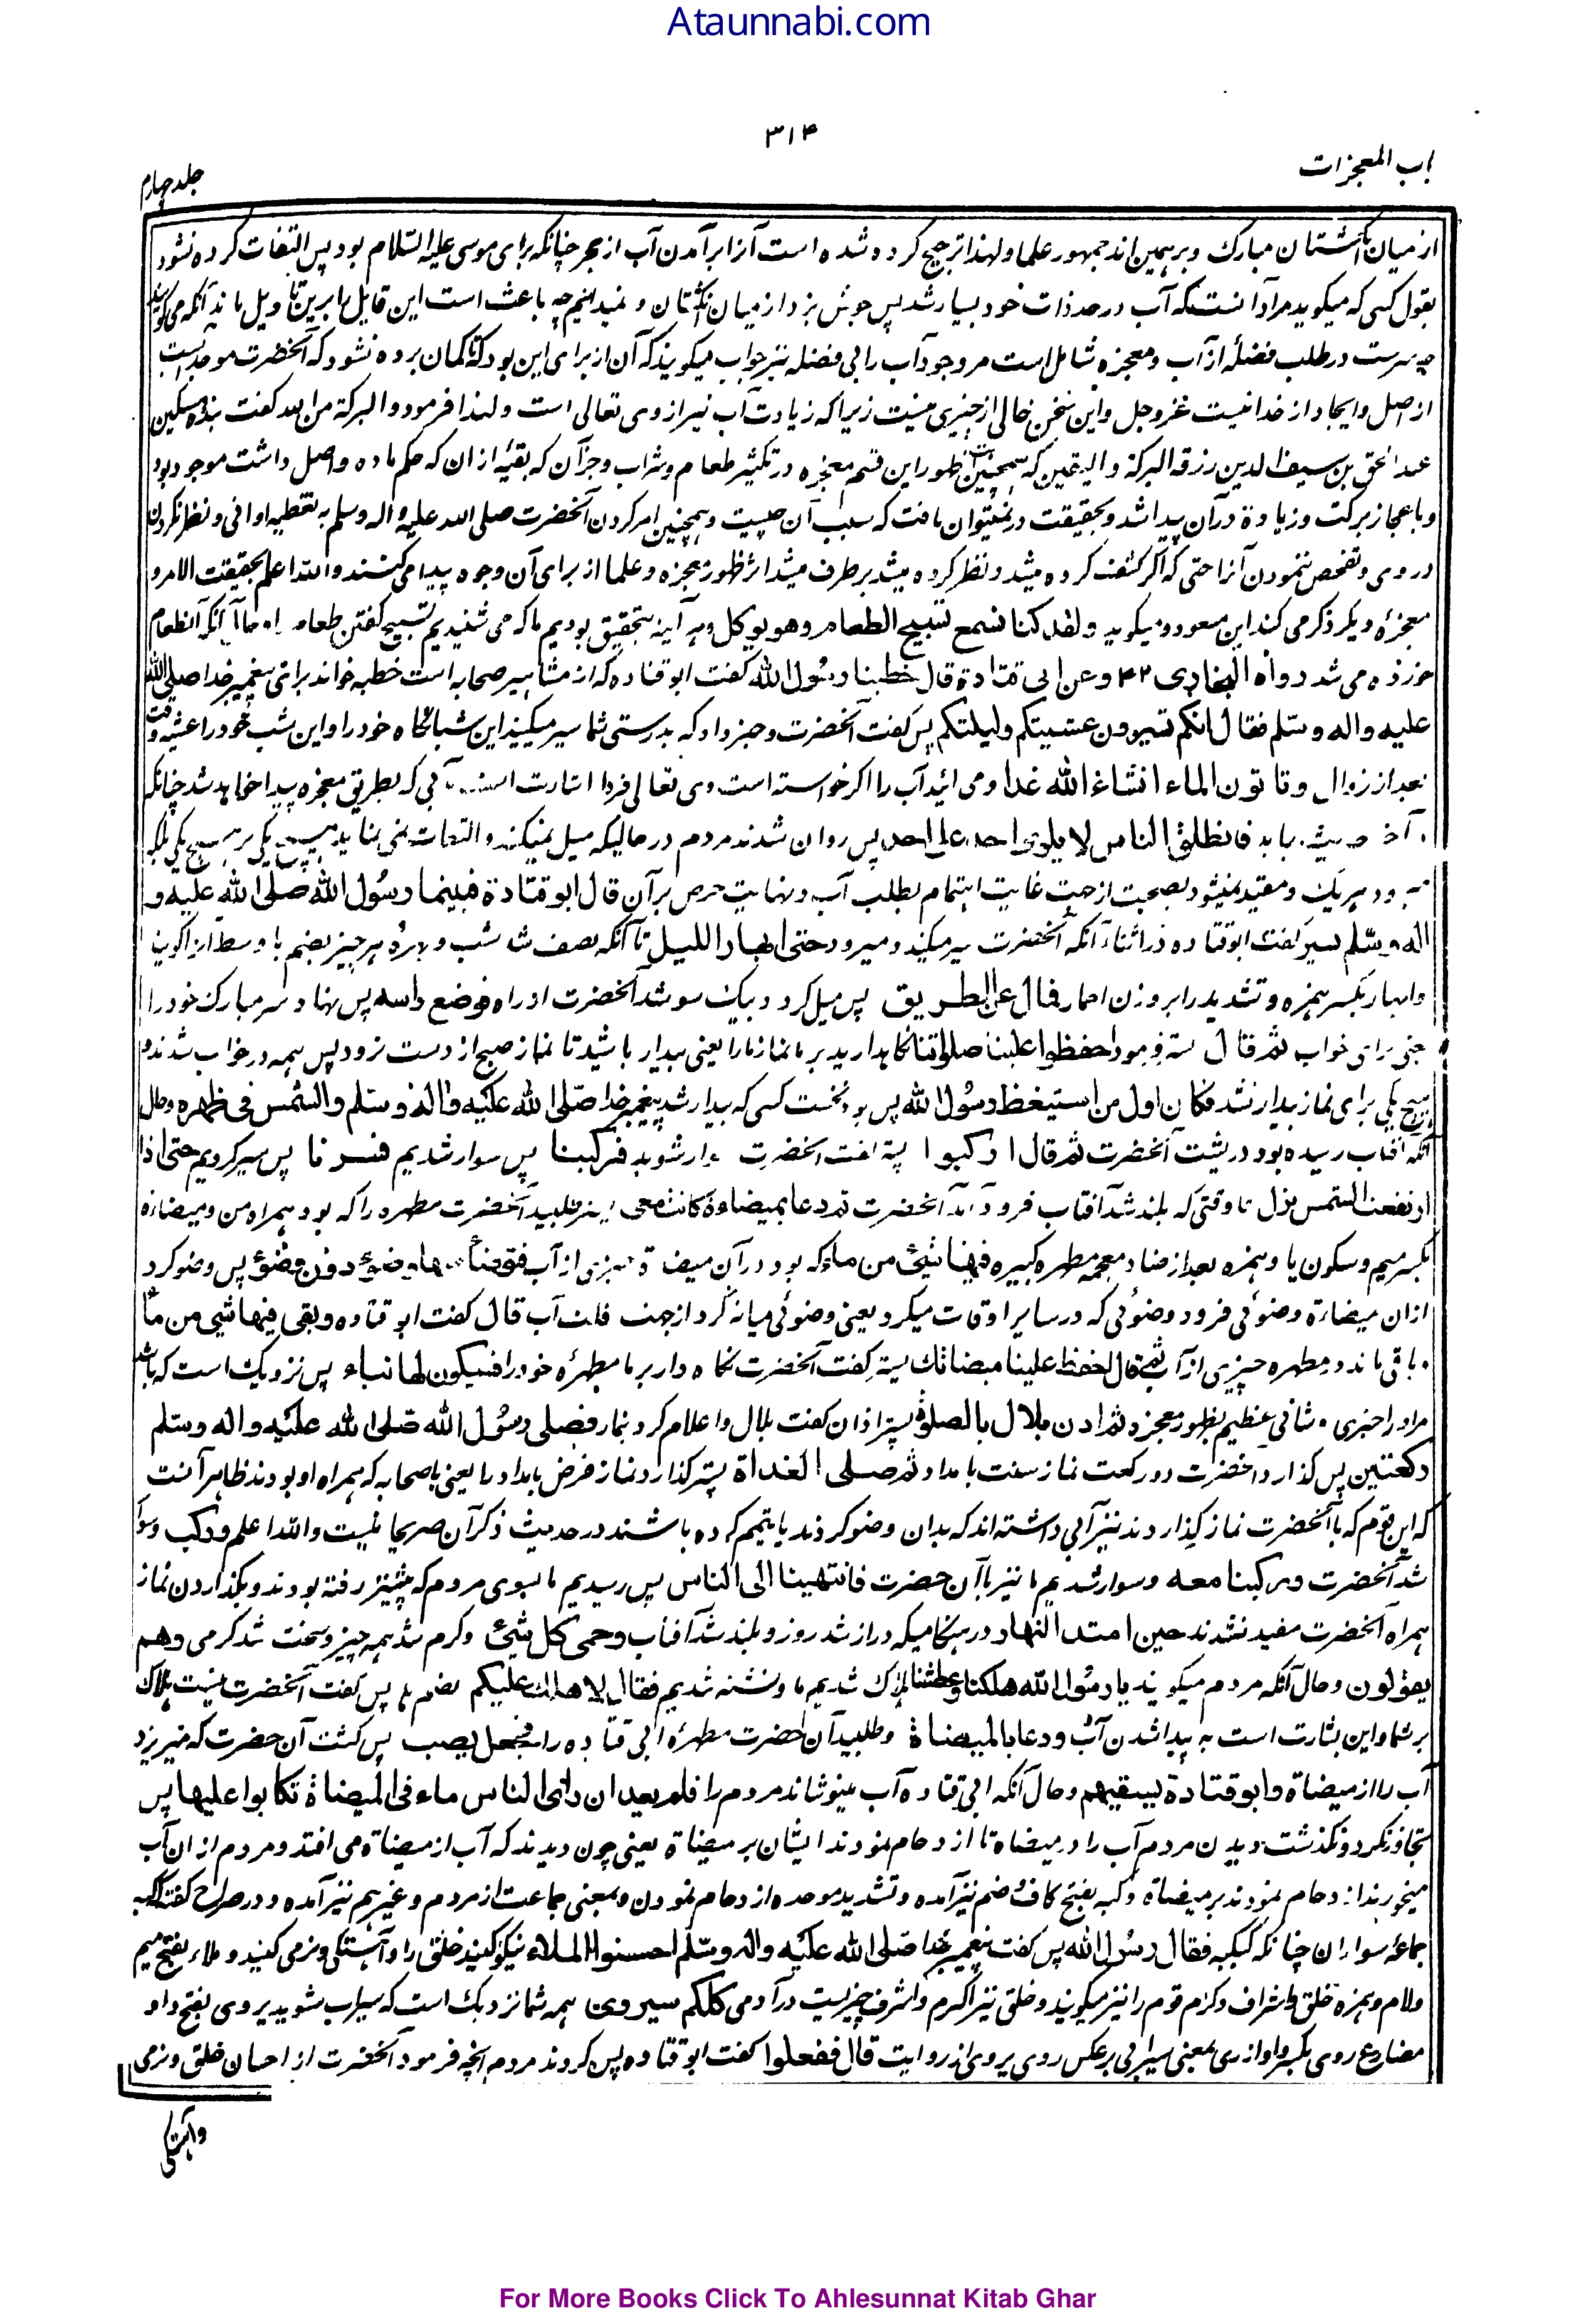 Ataunnabi.com
۳۱۴
باب المعجزات
جلد چهارم
از میان انگشتان مبارک و بر همین اند جمهور علما و لهذا ترجیح کرده شده است آنرا بر آمدن آب از حجر چنانکه برای موسی علیه السلام بود پس التفات کرده نشود
بقول کسی که میگوید مراد آنست که آب در حد ذات خود بسیار شد پس جوش بزد از میان انگشتان و نمیدانیم چه باعث است این قایل را برین تاویل ماند آنکه می گویند
چه سرست در طلب فضلۀ از آب و معجزه شامل است مر وجود آب را بی فضله نیز جواب میگویند که آن از برای این بود که تا گمان برده نشود که آنحضرت موجد است
از اصل و ایجاد از خدا نیست عز وجل و این سخن خالی از چیزی نیست زیرا که زیادت آب نیز از وی تعالی است و لهذا فرمود و البرکة من الله گفت بنده مسکین
عبد الحق بن سیف الدین رزقه البرکة و الیقین که همچنین ظهور این قسم معجزه در تکثیر طعام و شراب و جز آن که بقیۀ از ان که حکم ماده و اصل داشت موجود بود
و باعجاز برکت و زیادة در آن پیدا شد و بحقیقت در نمیتوان یافت که سبب آن چیست و همچنین امر کردن آنحضرت صلی الله علیه و اله و سلم به تغطیه اوانی و نظر نکردن
در وی و تفحص ننمودن آنرا حتی که اگر کشف کرده میشد و نظر کرده میشد برطرف میشد اثر ظهور معجزه و علما از برای آن وجوه پیدا می کنند والله اعلم بحقیقت الامر و
معجزۀ دیگر ذکر می کند ابن مسعود و میگوید ولقد کنا نسمع تسبیح الطعام وهو یوکل و هر آینه بتحقیق بودیم ما که می شنیدیم تسبیح گفتن طعام را و حال آنکه آنطعام
خورده می شد رواه البخاری ۴۲ وعن ابی قتادة قال خطبنا رسول الله گفت ابو قتاده که از مشاهیر صحابه است خطبه خواند برای ما پیغمبر خدا صلی الله
علیه واله وسلم فقال انکم تسیرون عشیتکم ولیلتکم پس گفت آنحضرت و خبر داد که بدرستی شما سیر میکنید این شبانگاه خود را و این شب خود را عشیه وقت
بعد از زوال وتاتون الماء انشاء الله غدا و می آئید آب را اگر خواسته است وی تعالی فردا اشارت است بآبی که بطریق معجزه پیدا خواهد شد چنانکه
در آخر حدیث بیابد فانطلق الناس لا یلوی احد علی احد پس روان شدند مردم در حالیکه میل نمیکند و التفات نمی نماید هیچ یکی بر هیچ یکی بلکه
میرود هر یک و مقید نمیشود بصحبت از جهت غایت اهتمام بطلب آب و نهایت حرص بر آن قال ابو قتادة فبینما رسول الله صلی الله علیه و
اله وسلم یسیر گفت ابو قتاده در اثناء آنکه آنحضرت سیر میکند و میرود حتی ابهار اللیل تا آنکه نصف شد شب و بهرۀ هر چیز بضم با وسط آنرا گویند
وابهار بکسر همزه و تشدید را بر وزن احمار فمال عن الطریق پس میل کرد و بیک سو شد آنحضرت از راه فوضع راسه پس نهاد سر مبارک خود را
یعنی برای خواب ثم قال پستر فرمود احفظوا علینا صلواتنا نگاهدارید بر ما نماز مارا یعنی بیدار باشید تا نماز صبح از دست نرود پس همه در خواب شدند و
هیچ یکی برای نماز بیدار نشد فکان اول من استیقظ رسول الله پس بود نخست کسی که بیدار شد پیغمبر خدا صلی الله علیه واله وسلم والشمس فی ظهره و حال
آنکه آفتاب رسیده بود در پشت آنحضرت ثم قال ارکبوا پستر گفت آنحضرت سوار شوید فرکبنا پس سوار شدیم فسرنا پس سیر کردیم حتی اذا
ارتفعت الشمس نزل تا وقتی که بلند شد آفتاب فرود آمد آنحضرت ثم دعا بمیضاءة کانت معی پستر طلبید آنحضرت مطهره را که بود همراه من و میضاءة
بکسر میم و سکون یا و همزه بعد از ضاد معجمه مطهره کبیره فیها شیٔ من ماء که بود در آن میضاة چیزی از آب فتوضأ منها وضوء دون وضوء پس وضو کرد
از ان میضاءة وضوئی فرود وضوئی که در سایر اوقات میکرد یعنی وضوئی میانه کرد از جهت قلت آب قال گفت ابو قتاده وبقی فیها شی من ماء
و باقی ماند در مطهره چیزی از آب ثم قال احفظ علینا میضاتک پستر گفت آنحضرت نگاه دار بر ما مطهرۀ خود را فسیکون لها نباء پس نزدیک است که باشد
مراورا خبری و شانی عظیم بظهور معجزه ثم اذن بلال بالصلوة پستر اذان گفت بلال و اعلام کرد بنماز فصلی رسول الله صلی الله علیه واله وسلم
رکعتین پس گذارد آنحضرت دو رکعت نماز سنت بامداد ثم صلی الغداة پستر گذارد نماز فرض بامداد را یعنی باصحابه که همراه او بودند ظاهر آنست
که این قوم که با آنحضرت نماز گذاردند نیز آبی داشته اند که بدان وضو کردند یا تیمم کرده باشند در حدیث ذکر آن صریحا نیست والله اعلم ورکب و سوار
شد آنحضرت ورکبنا معه و سوار شدیم ما نیز با آن حضرت فانتهینا الی الناس پس رسیدیم ما بسوی مردم که پیشتر رفته بودند و بگذاردن نماز
همراه آنحضرت مقید نشدند حین امتد النهار در هنگامیکه دراز شد روز و بلند شد آفتاب وحمی کل شیٔ و گرم شد همه چیز و سخت شد گرمی وهم
یقولون و حال آنکه مردم میگویند یا رسول الله هلکنا وعطشنا هلاک شدیم ما و تشنه شدیم فقال لا هلک علیکم بضم ها پس گفت آنحضرت نیست هلاک
بر شما و این بشارت است به پیدا شدن آب ودعا بالمیضاة و طلبید آن حضرت مطهرۀ ابی قتاده را فجعل یصب پس گشت آن حضرت که میریزد
آب را از میضاة وابو قتادة یسقیهم و حال آنکه ابی قتاده آب مینوشاند مردم را فلم یعد ان رای الناس ماء فی المیضاة تکابوا علیها پس
تجاوز نکرد و نگذشت دیدن مردم آب را در میضاه تا ازدحام نمودند ایشان بر میضاة یعنی چون دیدند که آب از میضاة می افتد و مردم از ان آب
میخورند ازدحام نمودند بر میضاة و کبه بفتح کاف و ضم نیز آمده و تشدید موحده ازدحام نمودن و بمعنی جماعت از مردم و غیر هم نیز آمده و در صراح گفته کبه
جماعۀ سواران چنانکه کبکبه فقال رسول الله پس گفت پیغمبر خدا صلی الله علیه واله وسلم احسنوا الملاء نیکو کنید خلق را و آهستگی و نرمی کنید و ملاء بفتح میم
و لام و همزه خلق و اشراف و کرام قوم را نیز میگویند و خلق نیز اکرم و اشرف چیزیست در آدمی کلکم سیروی همه شما نزدیک است که سیراب شوید یروی بفتح واو
مضارع روی بکسر واو از ری بمعنی سیرابی بر عکس روی یروی از روایت قال ففعلوا گفت ابو قتاده پس کردند مردم آنچه فرمود آنحضرت از احسان خلق و نرمی
و آهستگی
For More Books Click To Ahlesunnat Kitab Ghar